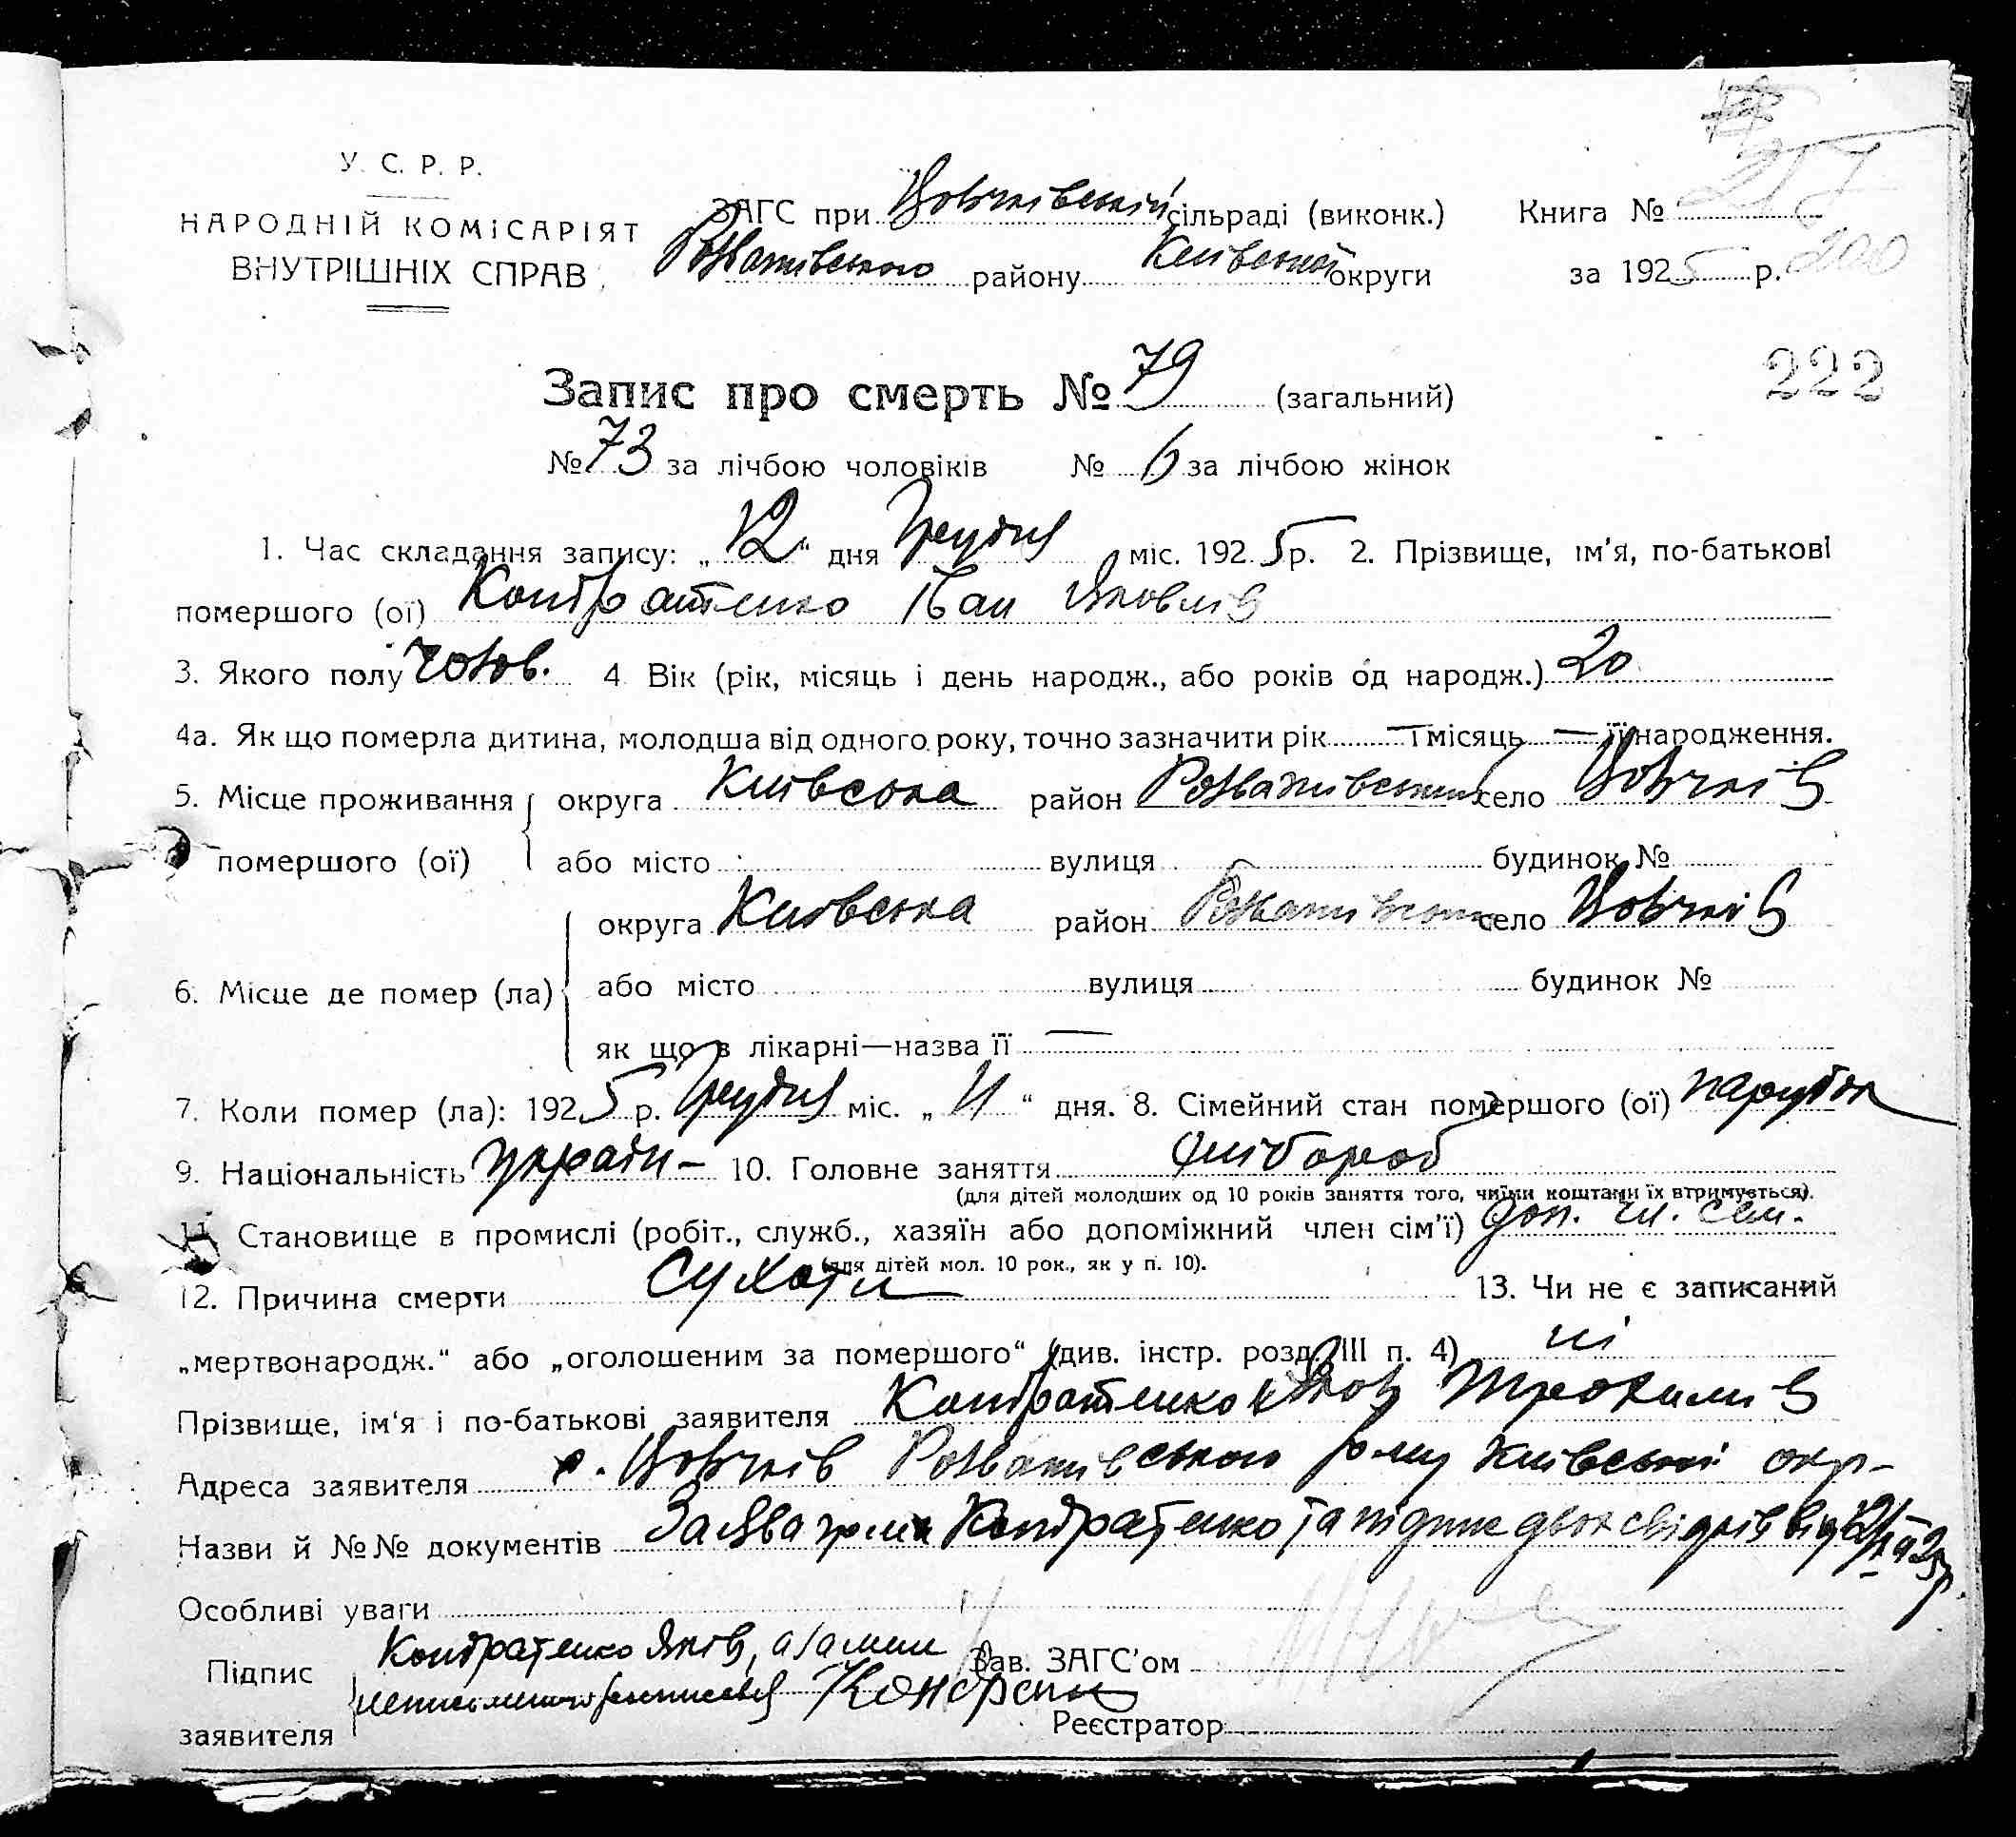 У. С. Р. Р.
НАРОДНІЙ КОМІСАРІЯТ
ВНУТРІШНІХ СПРАВ
ЗАГС при Вовчківській сільраді (виконк.)
Розважівського району Київської округи
Книга № 217
за 1925 р. 200
222
Запис про смерть № 79 (загальний)
№ 73 за лічбою чоловіків № 6 за лічбою жінок
1. Час складання запису: „12“ дня Грудня міс. 1925 р. 2. Прізвище, ім'я, по-батькові
помершого (ої) Кондратенко Іван Яковлів
3. Якого полу чолов. 4 Вік (рік, місяць і день народж., або років од народж.) 20
4а. Як що померла дитина, молодша від одного року, точно зазначити рік — і місяць — її народження.
5. Місце проживання округа Київська район Розважівський село Вовчків
помершого (ої) або місто вулиця будинок №
округа Київська район Розважівськ село Вовчків
6. Місце де помер (ла) або місто вулиця будинок №
як що в лікарні—назва її —
7. Коли помер (ла): 1925 р. Грудня міс. „11“ дня. 8. Сімейний стан помершого (ої) парубок
9. Національність україн– 10. Головне заняття хлібороб
(для дітей молодших од 10 років заняття того, чиїми коштами їх втримується).
11 Становище в промислі (робіт., служб., хазяїн або допоміжний член сім'ї) доп. чл. сем.
(для дітей мол. 10 рок., як у п. 10).
12. Причина смерти Сухоти 13. Чи не є записаний
„мертвонародж.“ або „оголошеним за помершого“ (див. інстр. розд. III п. 4) ні
Прізвище, ім'я і по-батькові заявителя Кондратенко Яков Трохимів
Адреса заявителя с. Вовчків Розважівського р-ну Київської окр–
Назви й №№ документів Заява гром. Кондратенко та підпис двох свідків від 12/XII 25 р.
Особливі уваги
Підпис Кондратенко Яків, а за ним Зав. ЗАГС'ом
неписьменного росписався Кондрат
заявителя Реєстратор